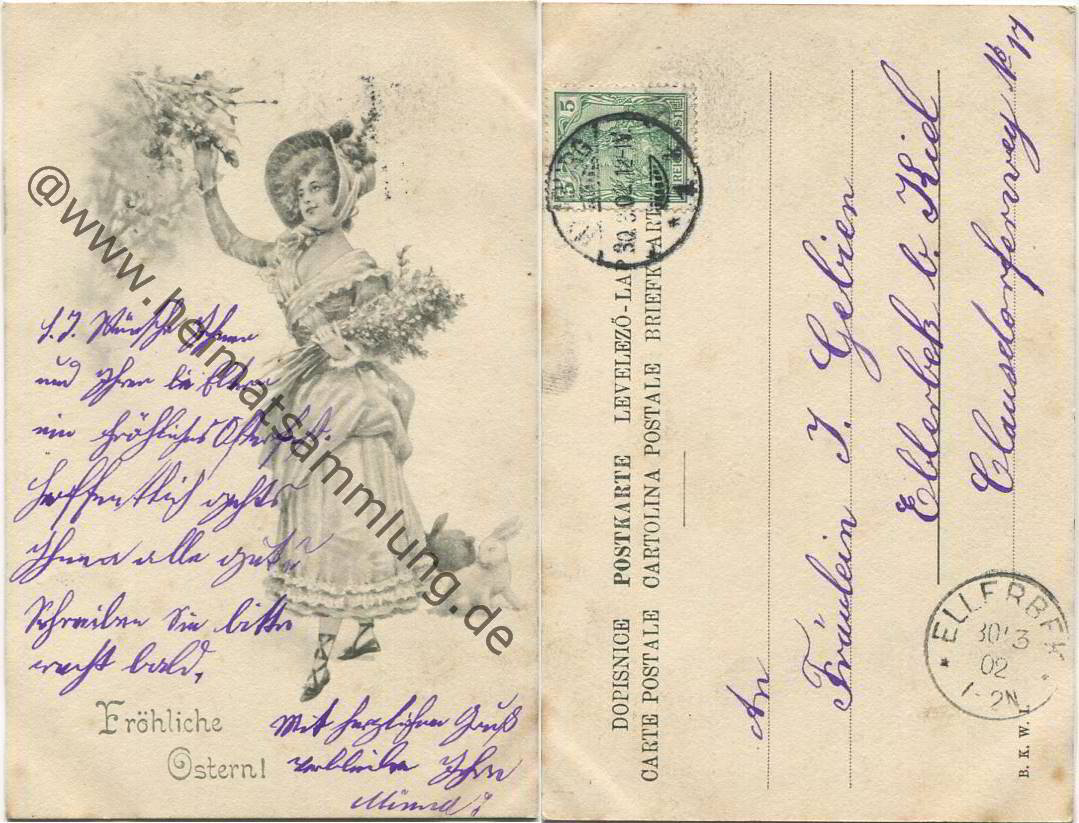 L. J. Wünsche Ihnen
und Ihren lb. Eltern
ein fröhliches Osterfest.
Hoffentlich gehts
Ihnen alle gut.
Schreiben Sie bitte
recht bald.
Fröhliche
Ostern!
Mit herzlichem Gruß
verbleibe Ihre
@www.heimatsammlung.de
5
5
REICHSPOST
30.3.02.12-1N.
DOPISNICE POSTKARTE LEVELEZŐ-LAP
CARTE POSTALE CARTOLINA POSTALE BRIEFKAART
An
Fräulein J. Gebien
Ellerbek b. Kiel
Clausdorferweg № 17
ELLERBEK
30/3
02
1-2N
B. K. W. I.